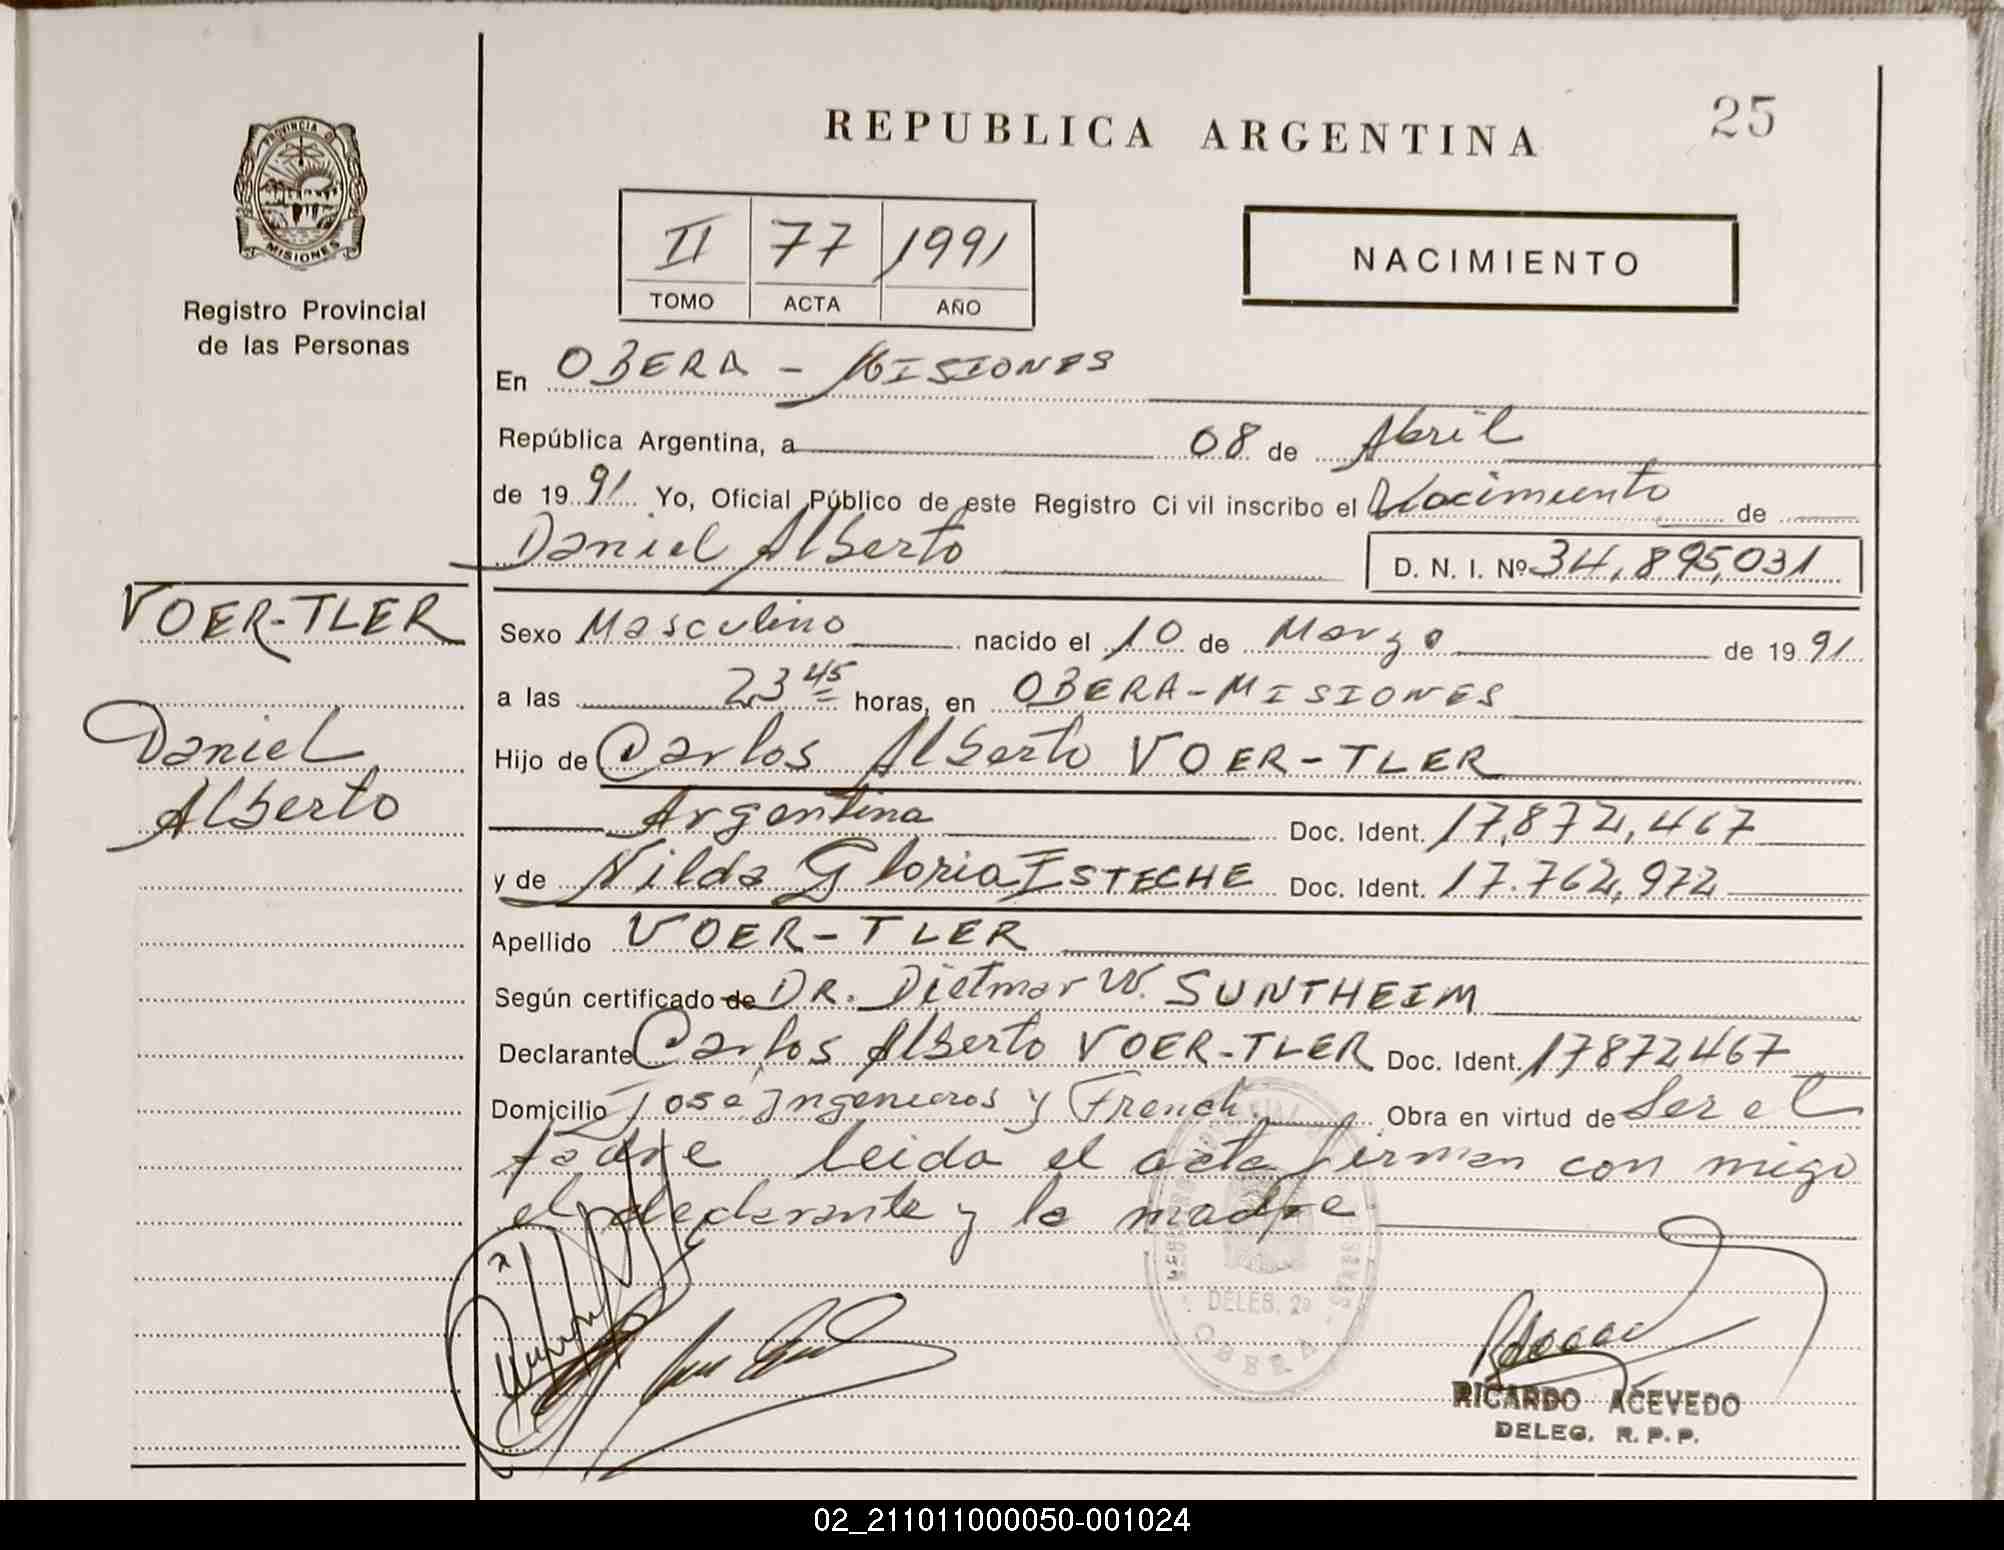 REPUBLICA ARGENTINA
25
PROVINCIA DE
MISIONES
Registro Provincial
de las Personas
II 77 1991
TOMO ACTA AÑO
NACIMIENTO
En OBERA - MISIONES
República Argentina, a 08 de Abril
de 19 91 Yo, Oficial Público de este Registro Ci vil inscribo el Nacimiento de
Daniel Alberto D. N. I. Nº 34,895,031
VOER-TLER
Daniel
Alberto
Sexo Masculino nacido el 10 de Marzo de 19 91
a las 23 45 horas, en OBERA-MISIONES
Hijo de Carlos Alberto VOER-TLER
Argentina Doc. Ident. 17,872,467
y de Nilda Gloria ESTECHE Doc. Ident. 17.762,972
Apellido VOER-TLER
Según certificado de DR. Dietmar W. SUNTHEIM
Declarante Carlos Alberto VOER-TLER Doc. Ident. 17872467
Domicilio José Ingenieros y French. Obra en virtud de Ser el
padre leida el acta firman con migo
el declarante y la madre
DELEG. 2ª
OBERA
RICARDO ACEVEDO
DELEG. R. P. P.
02_211011000050-001024